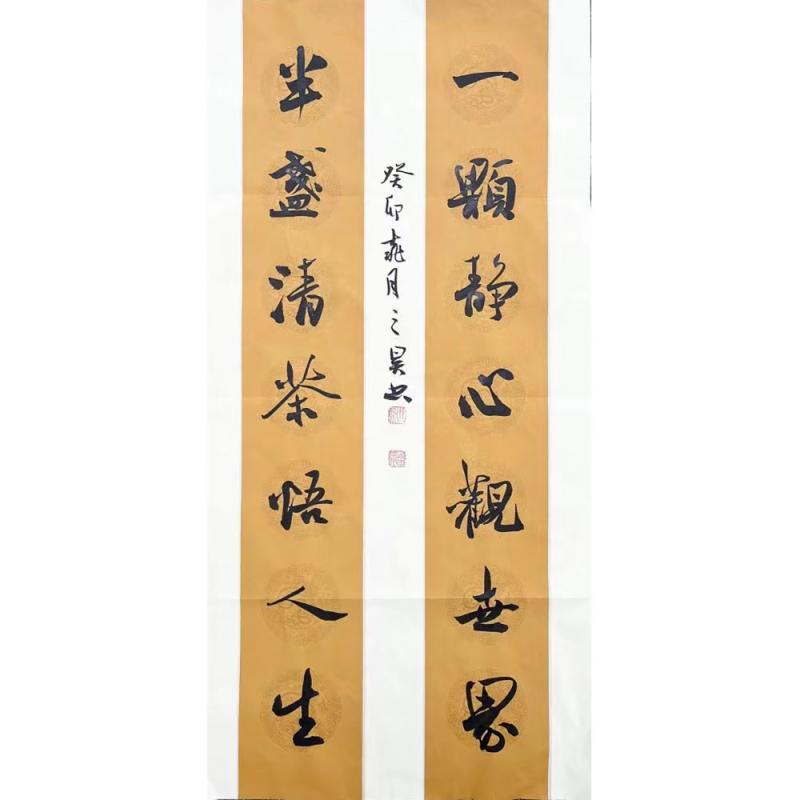 一顆静心觀世界
半盞清茶悟人生
癸卯月之昊书